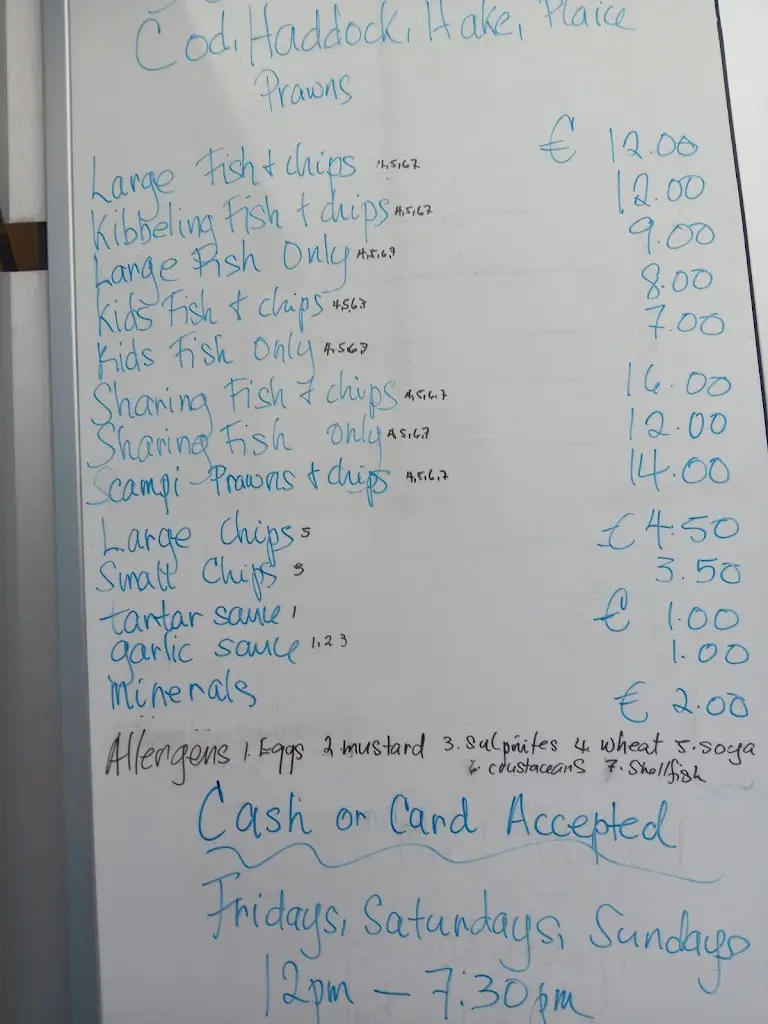 Cod, Haddock, Hake, Plaice
Prawns
Large Fish + chips 4,5,6,7 € 12.00
Kibbeling Fish + chips 4,5,6,7 12.00
Large Fish Only 4,5,6,7 9.00
Kids Fish + chips 4,5,6,7 8.00
Kids Fish Only 4,5,6,7 7.00
Sharing Fish + chips 4,5,6,7 16.00
Sharing Fish only 4,5,6,7 12.00
Scampi Prawns + chips 4,5,6,7 14.00
Large Chips 5 € 4.50
Small Chips 5 3.50
tartar sauce 1 € 1.00
garlic sauce 1,2 3 1.00
Minerals € 2.00
Allergens 1. Eggs 2 mustard 3. Sulphites 4. wheat 5. soya
6. crustaceans 7. Shellfish
Cash or Card Accepted
Fridays, Saturdays, Sundays
12pm – 7:30pm